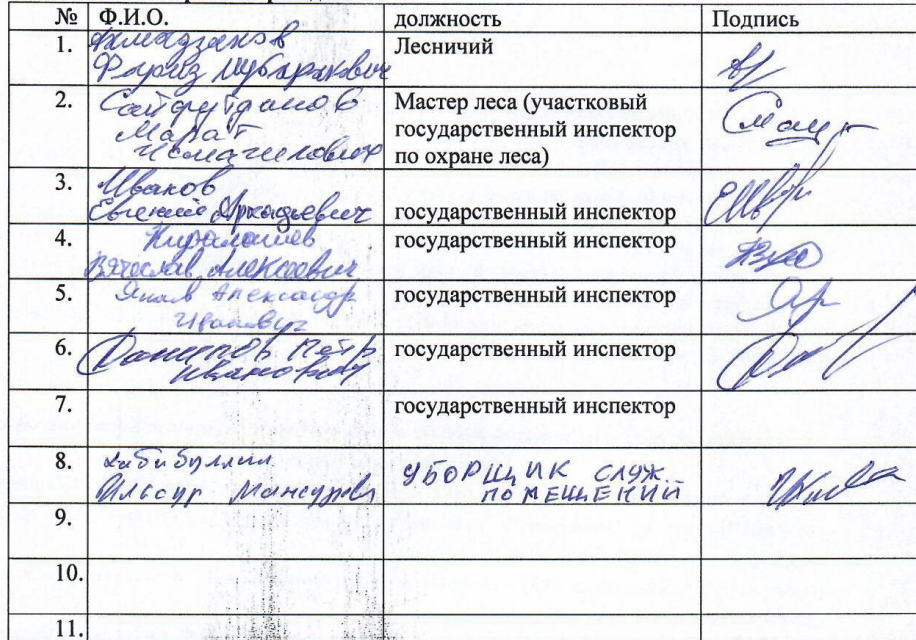 № Ф.И.О. должность Подпись
1. Фариз Мубаракович Лесничий
2. Марат Исмагилович Мастер леса (участковый
государственный инспектор
по охране леса)
3. Иванов
Евгений Аркадьевич государственный инспектор
4. Вячеслав Алексеевич государственный инспектор
5. Александр
Иванович государственный инспектор
6. Данилов Петр
Иванович государственный инспектор
7. государственный инспектор
8. Хабибуллин
Ильсур УБОРЩИК СЛУЖ.
ПОМЕЩЕНИЙ
9.
10.
11.